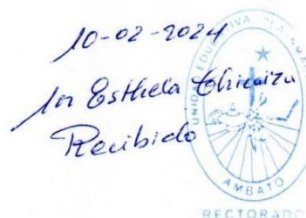 10-02-2024
Esthela Chicaiza
Recibido
UNIDAD EDUCATIVA
AMBATO
RECTORADO